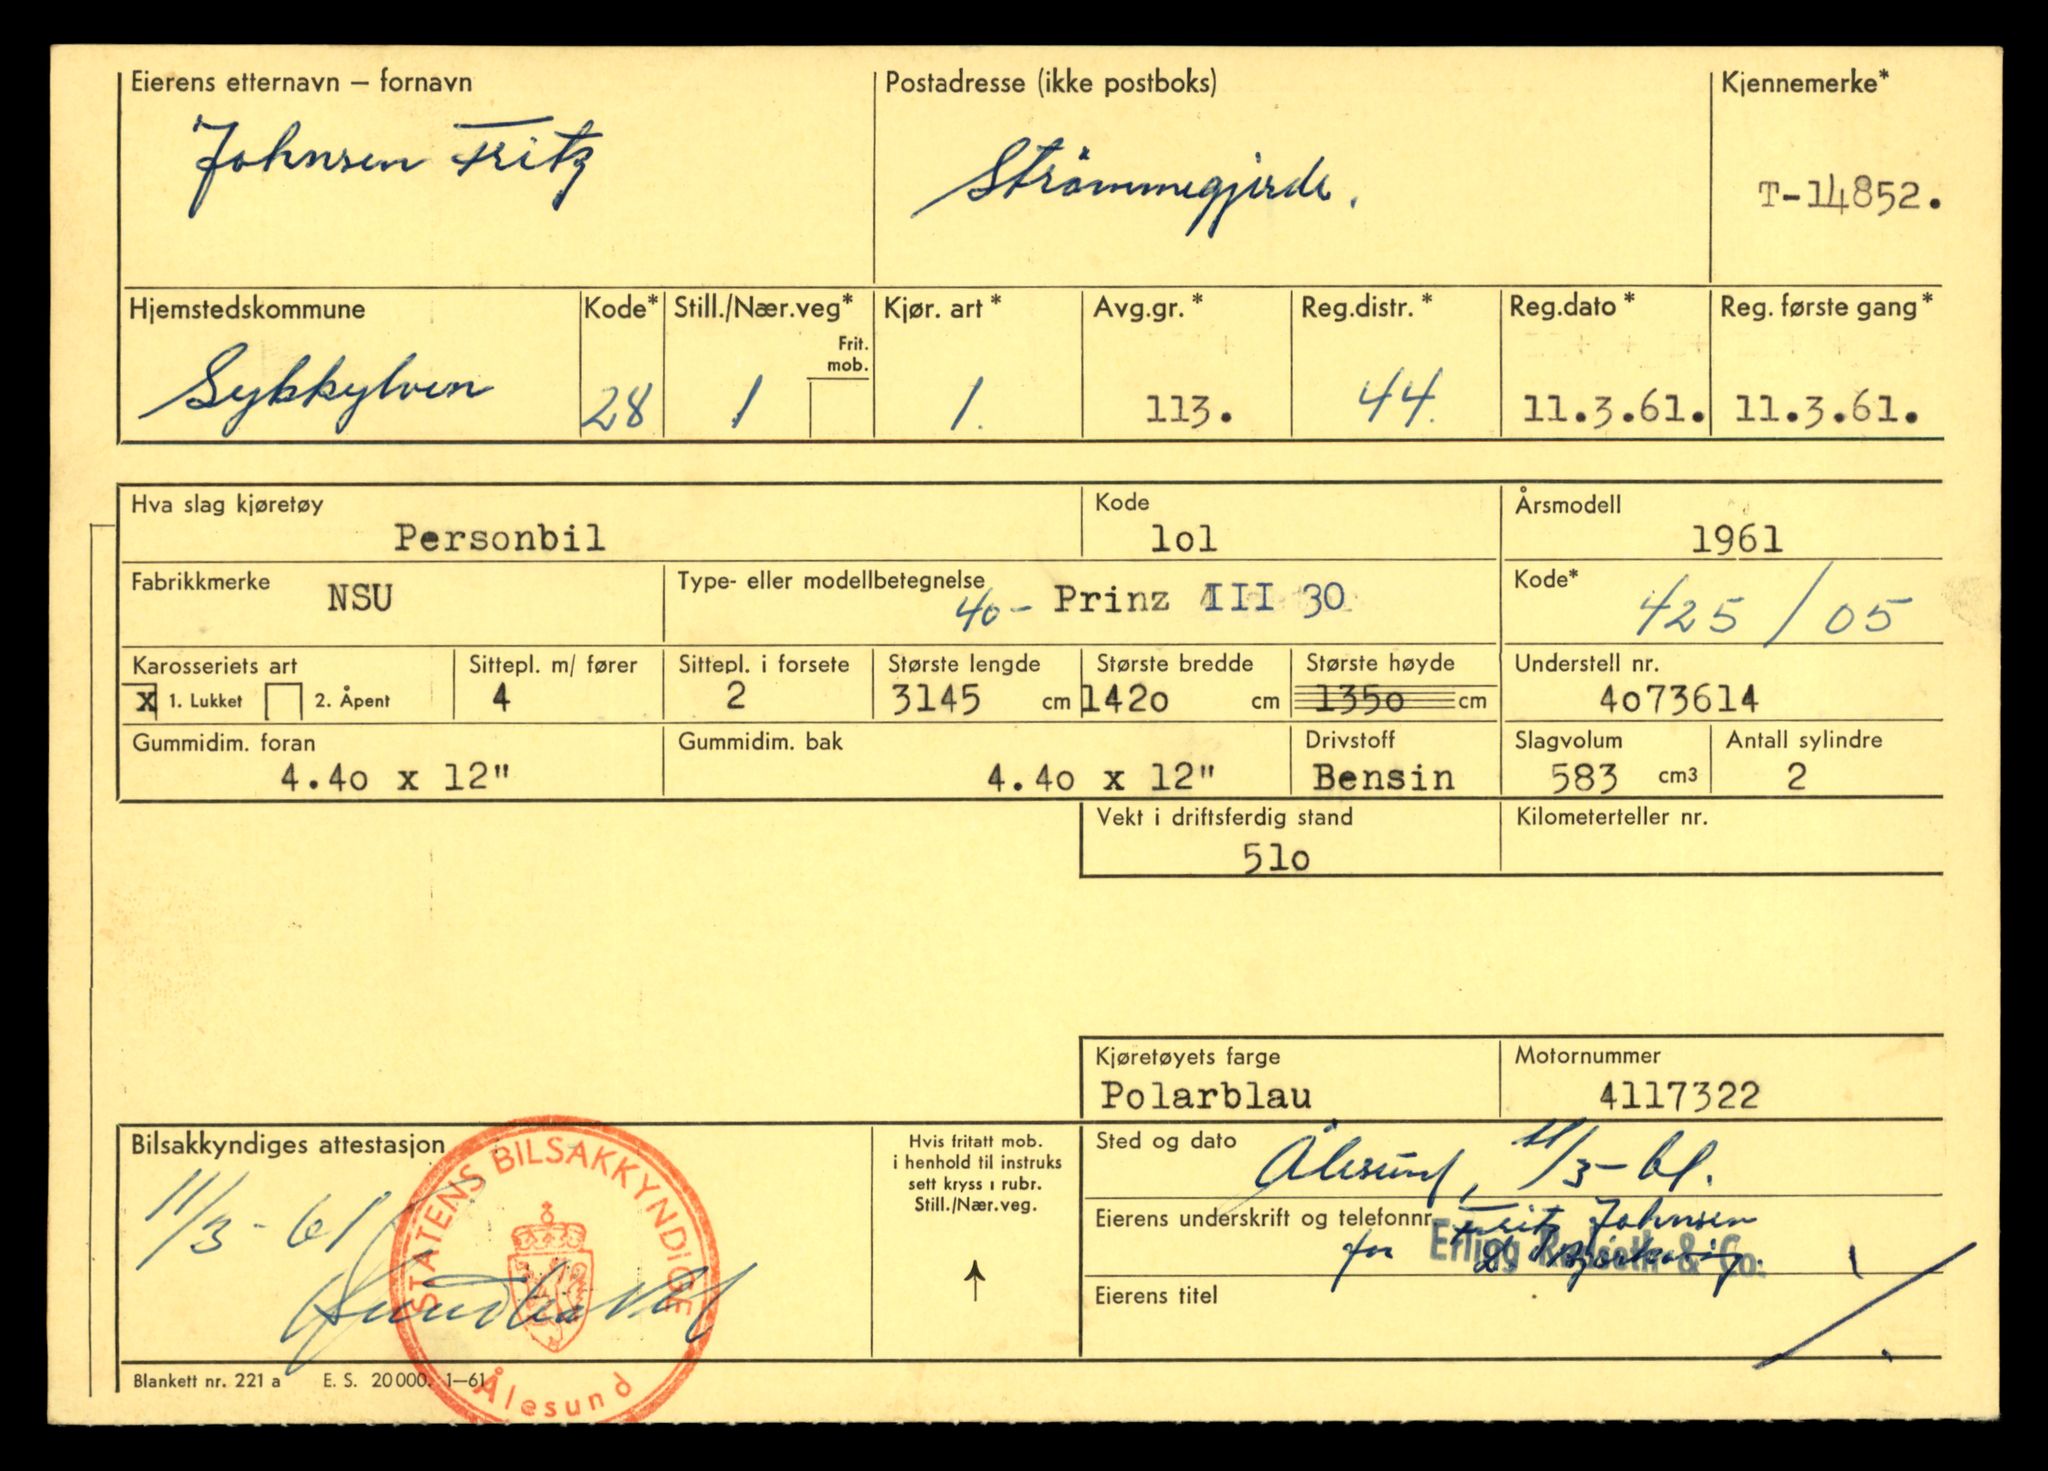 Eierens etternavn – fornavn
Johnsen Fritz
Postadresse (ikke postboks)
Strømmegjerde.
Kjennemerke*
T-14852.
Hjemstedskommune
Sykkylven
Kode*
28
Still./Nær.veg*
1
Frit.
mob.
Kjør. art *
1.
Avg.gr. *
113.
Reg.distr. *
44.
Reg.dato *
11.3.61.
Reg. første gang*
11.3.61.
Hva slag kjøretøy
Personbil
Kode
lol
Årsmodell
1961
Fabrikkmerke
NSU
Type- eller modellbetegnelse
40- Prinz III 30
Kode*
425 / 05
Karosseriets art
x 1. Lukket 2. Åpent
Sittepl. m/ fører
4
Sittepl. i forsete
2
Største lengde
3145 cm
Største bredde
1420 cm
Største høyde
1350 cm
Understell nr.
4073614
Gummidim. foran
4.40 x 12"
Gummidim. bak
4.40 x 12"
Drivstoff
Bensin
Slagvolum
583 cm3
Antall sylindre
2
Vekt i driftsferdig stand
510
Kilometerteller nr.
Kjøretøyets farge
Polarblau
Motornummer
4117322
Bilsakkyndiges attestasjon
11/3-61
STATENS BILSAKKYNDIGE
Ålesund
Hvis fritatt mob.
i henhold til instruks
sett kryss i rubr.
Still./Nær.veg.
Sted og dato
Ålesund, 11/3-61.
Eierens underskrift og telefonnr.
Fritz Johnsen
for
Erling & Co.
Eierens titel
Blankett nr. 221 a E. S. 20 000. 1–61